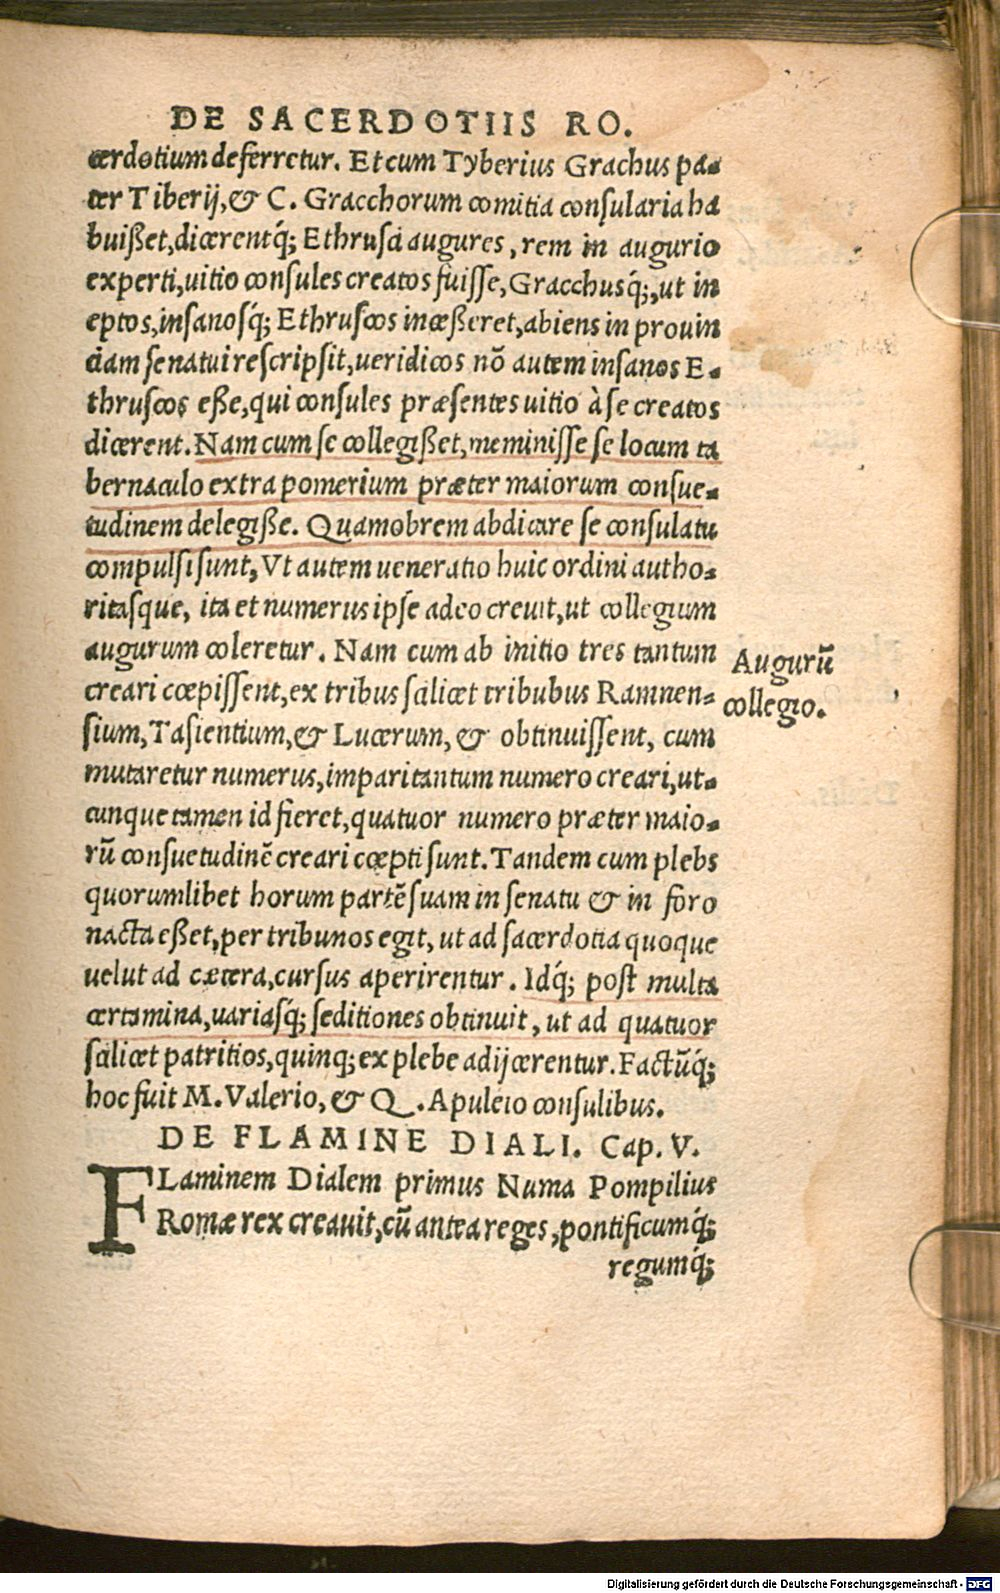 DE SACERDOTIIS RO.
cerdotium deferretur. Et cum Tyberius Grachus pa-
ter Tiberij, & C. Gracchorum comitia consularia ha
buißet, dicerentq́; Ethrusci augures, rem in augurio
experti, uitio consules creatos fuisse, Gracchusq́;, ut in
eptos, insanosq́; Ethruscos incæßeret, abiens in prouin
ciam senatui rescripsit, ueridicos nō autem insanos E-
thruscos eße, qui consules præsentes uitio à se creatos
dicerent. Nam cum se collegißet, meminisse se locum ta
bernaculo extra pomerium præter maiorum consue-
tudinem delegiße. Quamobrem abdicare se consulatu
compulsi sunt, Vt autem ueneratio huic ordini autho-
ritasque, ita et numerus ipse adeo creuit, ut collegium
augurum coleretur. Nam cum ab initio tres tantum
creari cœpissent, ex tribus scilicet tribubus Ramnen-
sium, Tasientium, & Lucerum, & obtinuissent, cum
mutaretur numerus, impari tantum numero creari, ut-
cunque tamen id fieret, quatuor numero præter maio-
rū consuetudinē creari cœpti sunt. Tandem cum plebs
quorumlibet horum partē suam in senatu & in foro
nacta eßet, per tribunos egit, ut ad sacerdotia quoque
uelut ad cætera, cursus aperirentur. Idq́; post multa
certamina, uariasq́; seditiones obtinuit, ut ad quatuor
scilicet patritios, quinq; ex plebe adijcerentur. Factūq́;
hoc fuit M. Valerio, & Q. Apuleio consulibus.
Augurū
collegio.
DE FLAMINE DIALI. Cap. V.
FLaminem Dialem primus Numa Pompilius
Romæ rex creauit, cū antea reges, pontificumq́;
regumq́;
Digitalisierung gefördert durch die Deutsche Forschungsgemeinschaft - DFG